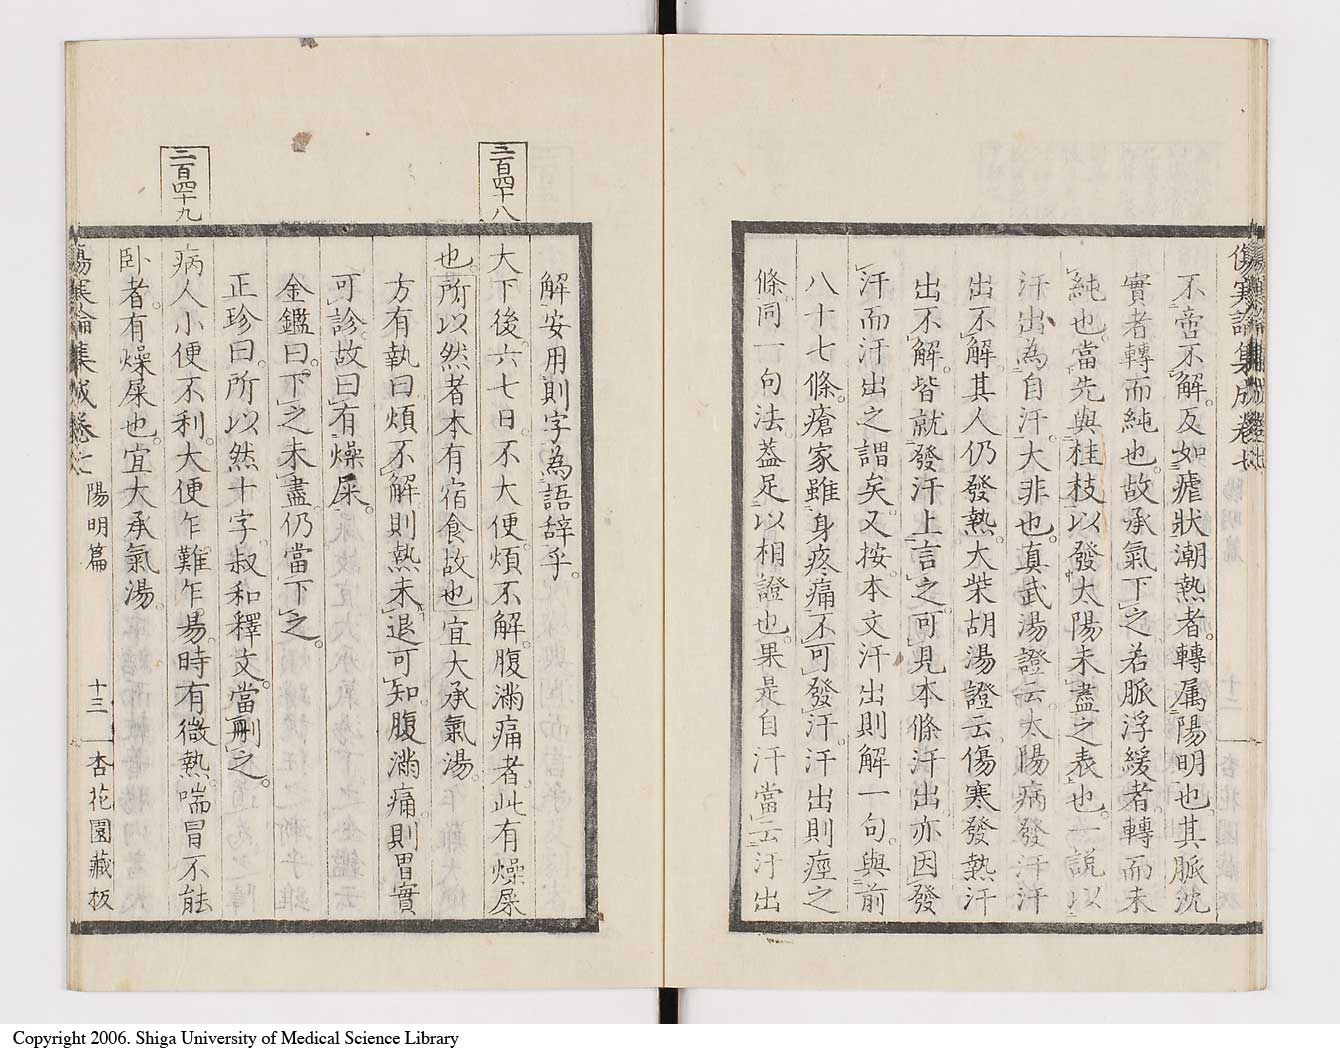 傷寒論集成卷七
不啻不解反如瘧狀潮熱者轉属陽明也其脈沈
實者轉而純也故承氣下之若脈浮緩者轉而未
純也當先與桂枝以發大陽未盡之表也一說以
汗出為自汗大非也真武湯證云太陽病發汗汗
出不解其人仍發熱大柴胡湯證云傷寒發熱汗
出不解皆就發汗上言之可見本條汗出亦因發
汗而汗出之謂矣又按本文汗出則解一句與前
八十七條瘡家雖身疼痛不可發汗汗出則痙之
條同一句法葢足以相證也果是自汗當云汗出
解安用則字為語辞乎
三百四十八
大下後六七日不大便煩不解腹滿痛者此有燥屎
也所以然者本有宿食故也宜大承氣湯
方有執曰煩不解則熱未退可知腹滿痛則胃實
可診故曰有燥屎
金鑑曰下之未盡仍當下之
正珍曰所以然十字叔和釋文當刪之
三百四十九
病人小便不利大便乍難乍易時有微熱喘冒不能
卧者有燥屎也宜大承氣湯
傷寒論集成卷七 陽明篇 十三 杏花園藏板